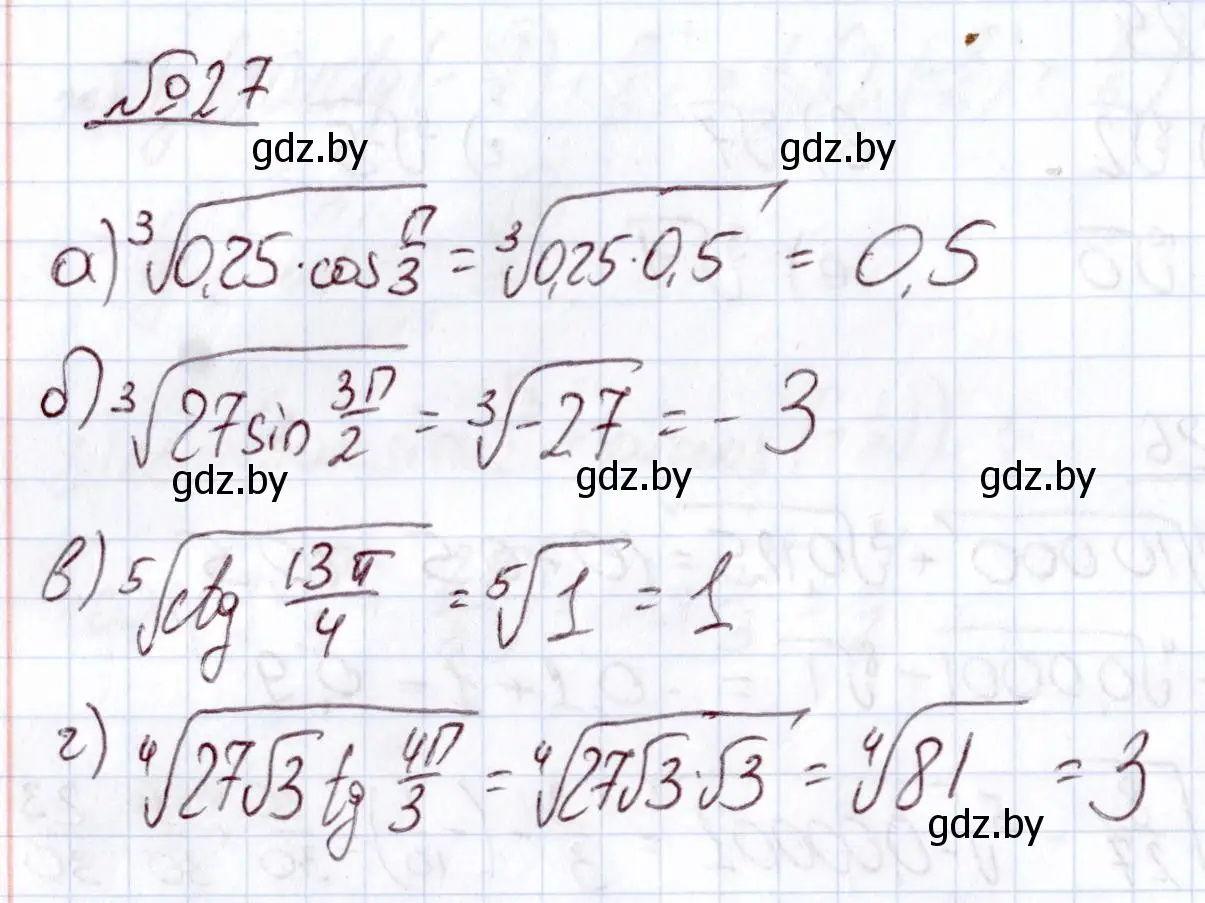 №27
gdz.by gdz.by
а) ∛(0,25·cos π/3) = ∛(0,25·0,5) = 0,5
б) ∛(27sin 3π/2) = ∛(-27) = -3
gdz.by gdz.by gdz.by
в) ⁵√(ctg 13π/4) = ⁵√1 = 1
г) ⁴√(27√3 tg 4π/3) = ⁴√(27√3·√3) = ⁴√81 = 3
gdz.by